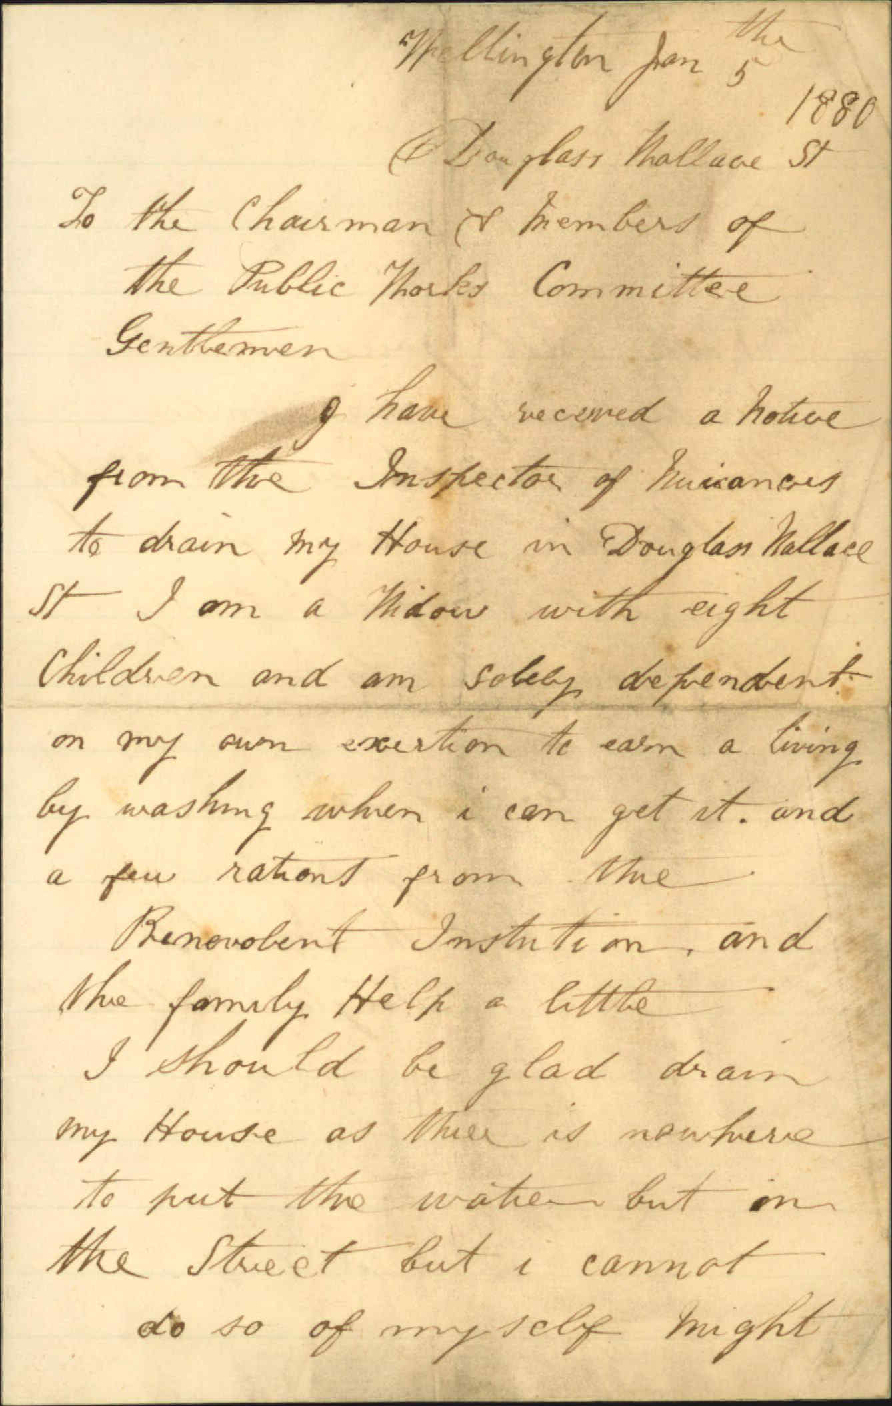 Wellington Jan 5 the
1880
Douglass Wallace St
To the Chairman & Members of
the Public Works Committee
Gentlemen
I have received a Notice
from the Inspector of Nuicances
to drain my House in Douglass Wallace
St I am a Widow with eight
Children and am soleey dependent
on my own exertion to earn a living
by washing when i can get it. and
a few rations from the
Benevolent Instution. and
the family Help a little
I should be glad drain
my House as thee is nowhere
to put the water but in
the Street but i cannot
do so of myself Might